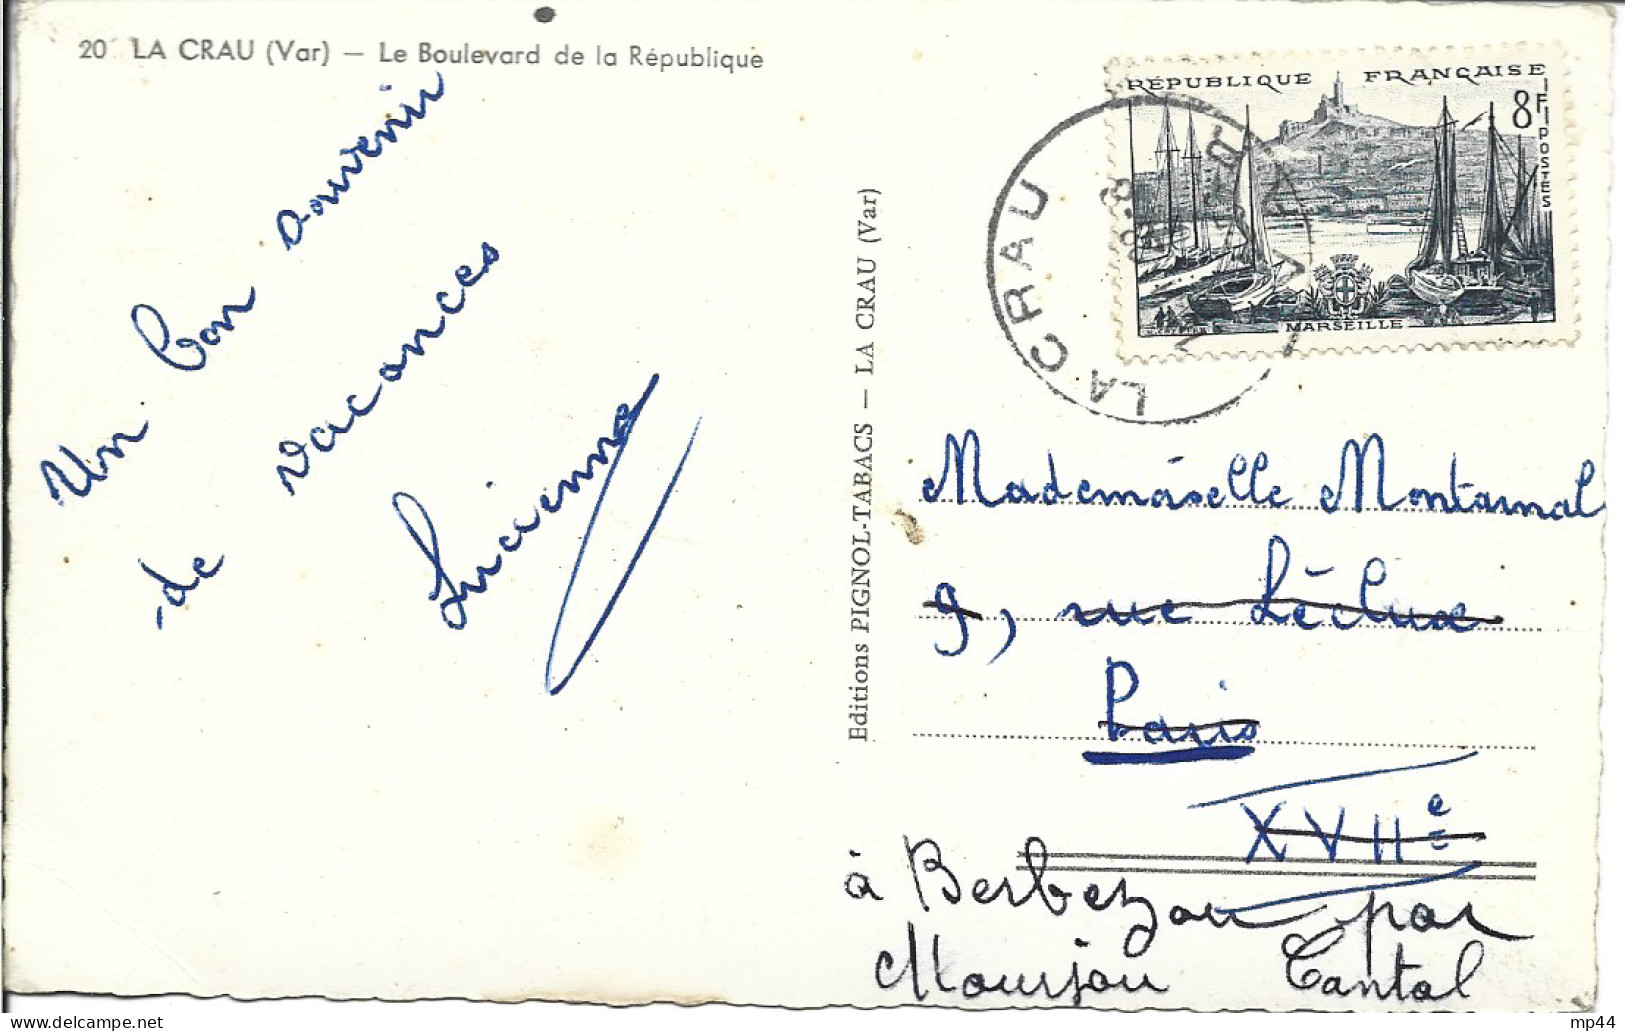 20 LA CRAU (Var) — Le Boulevard de la République
Un bon souvenir
de vacances
Lucienne
Editions PIGNOL-TABACS — LA CRAU (Var)
RÉPUBLIQUE FRANÇAISE
8F
POSTES
MARSEILLE
LA CRAU
VAR
Mademoiselle Montarnal
9, rue Lécluse
Paris
XVIIe
à Berbezou par
Mourjou Cantal
mp44